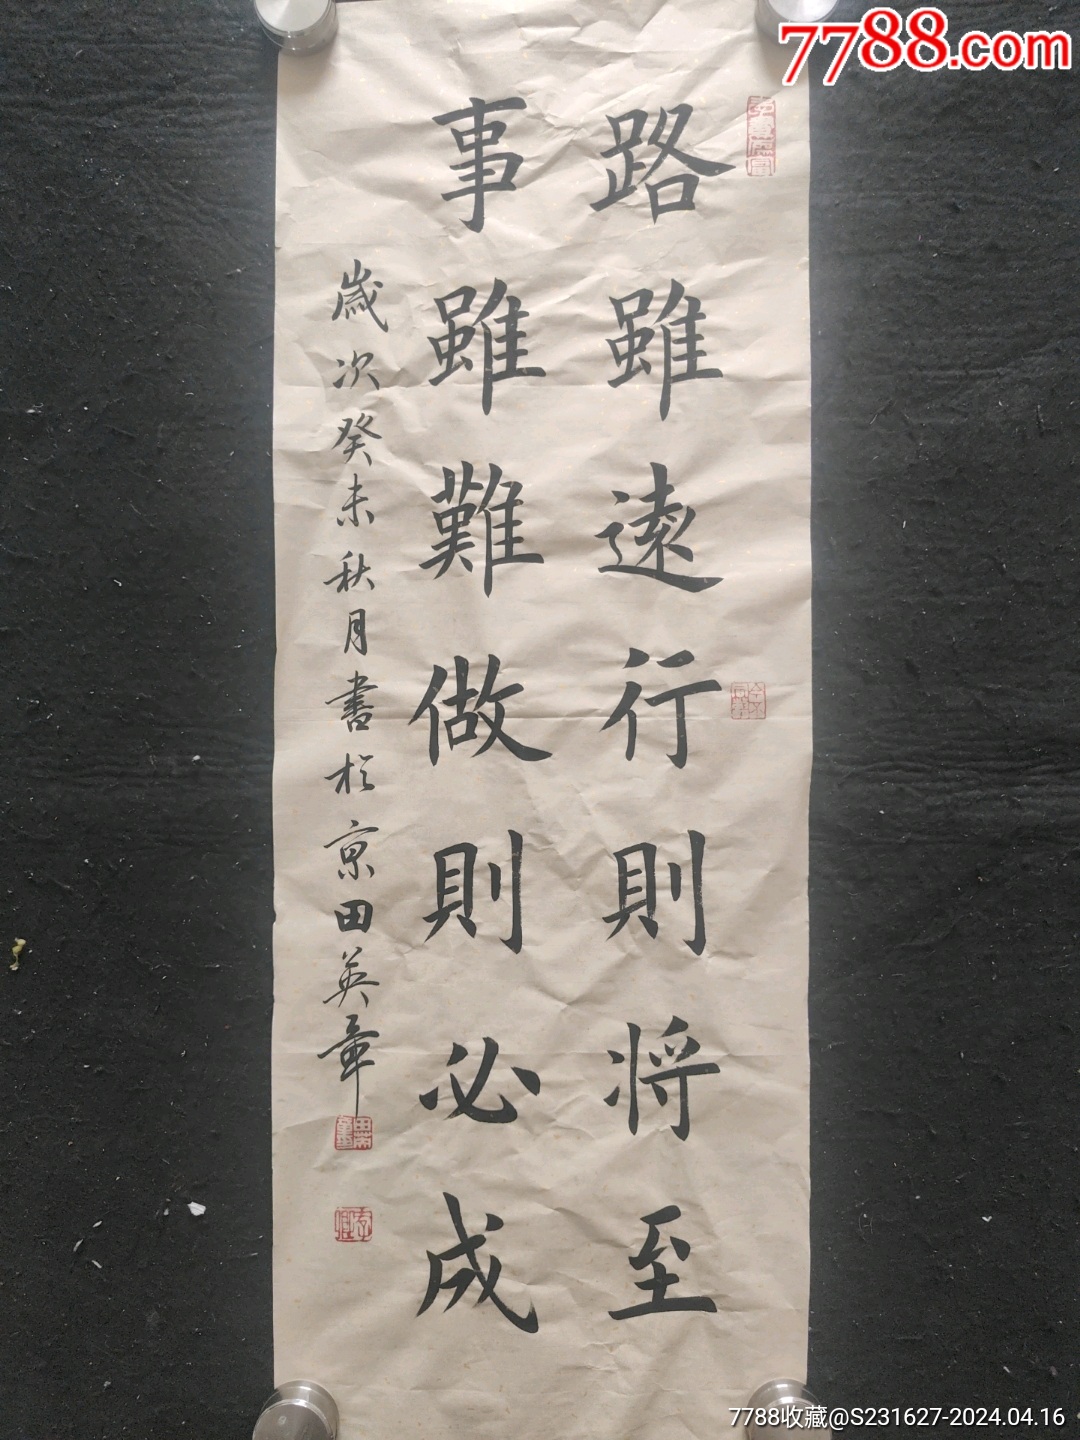 7788.com
路雖遠行則将至
事雖難做則必成
歲次癸未秋月書於京田英章
7788收藏@S231627-2024.04.16